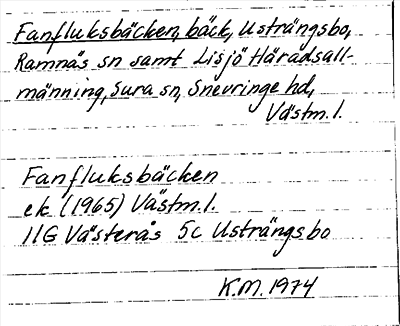 Fanfluksbäcken, bäck, Usträngsbo,
Ramnäs sn samt Lisjö Häradsall-
männing, Sura sn, Snevringe hd,
Västm.l.
Fanfluksbäcken
ek (1965) Västm.l.
11G Västerås 5c Usträngsbo
K.M. 1974